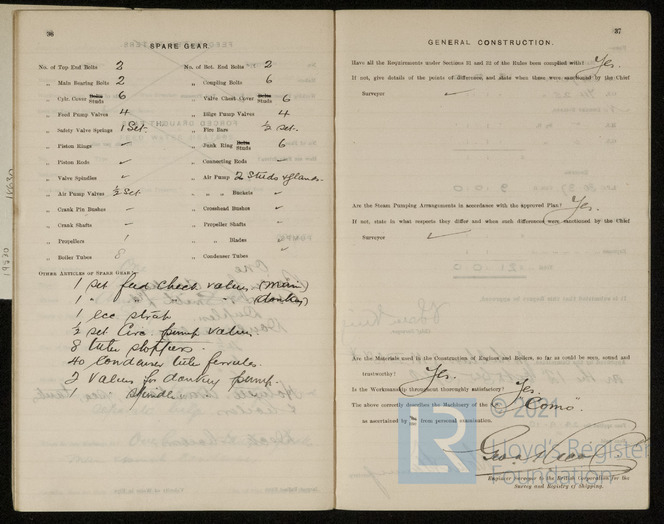 36
SPARE GEAR.
No. of Top End Bolts 2 No. of Bot. End Bolts 2
„ Main Bearing Bolts 2 „ Coupling Bolts 6
„ Cylr. Cover Bolts Studs 6 „ Valve Chest Cover Bolts Studs 6
„ Feed Pump Valves 4 „ Bilge Pump Valves 4
„ Safety Valve Springs 1 Set. „ Fire Bars ½ Set.
„ Piston Rings ✓ „ Junk Ring Bolts Studs 6
„ Piston Rods ✓ „ Connecting Rods ✓
„ Valve Spindles ✓ „ Air Pump 2 Studs & glands.
„ Air Pump Valves ½ Set „ „ „ Buckets ✓
„ Crank Pin Bushes ✓ „ Crosshead Bushes ✓
„ Crank Shafts ✓ „ Propeller Shafts ✓
„ Propellers 1 „ „ Blades ✓
„ Boiler Tubes 8 „ Condenser Tubes ✓
OTHER ARTICLES OF SPARE GEAR:—
1 set feed check valves (main)
1 „ „ „ (donkey)
1 ecc strap
½ set Circ. pump valves.
8 tube stoppers.
40 Condenser tube ferrules.
2 valves for donkey pump.
1 Spindle
37
GENERAL CONSTRUCTION.
Have all the Requirements under Sections 31 and 32 of the Rules been complied with? Yes.
If not, give details of the points of difference, and state when these were sanctioned by the Chief
Surveyor ✓
Are the Steam Pumping Arrangements in accordance with the approved Plan? Yes.
If not, state in what respects they differ and when such differences were sanctioned by the Chief
Surveyor ✓
Are the Materials used in the Construction of Engines and Boilers, so far as could be seen, sound and
trustworthy? Yes.
Is the Workmanship throughout thoroughly satisfactory? Yes.
The above correctly describes the Machinery of the S.S. "Como".
as ascertained by me from personal examination.
Engineer Surveyor to the British Corporation for the
Survey and Registry of Shipping.
© 2021
LR
Lloyd's Register
Foundation